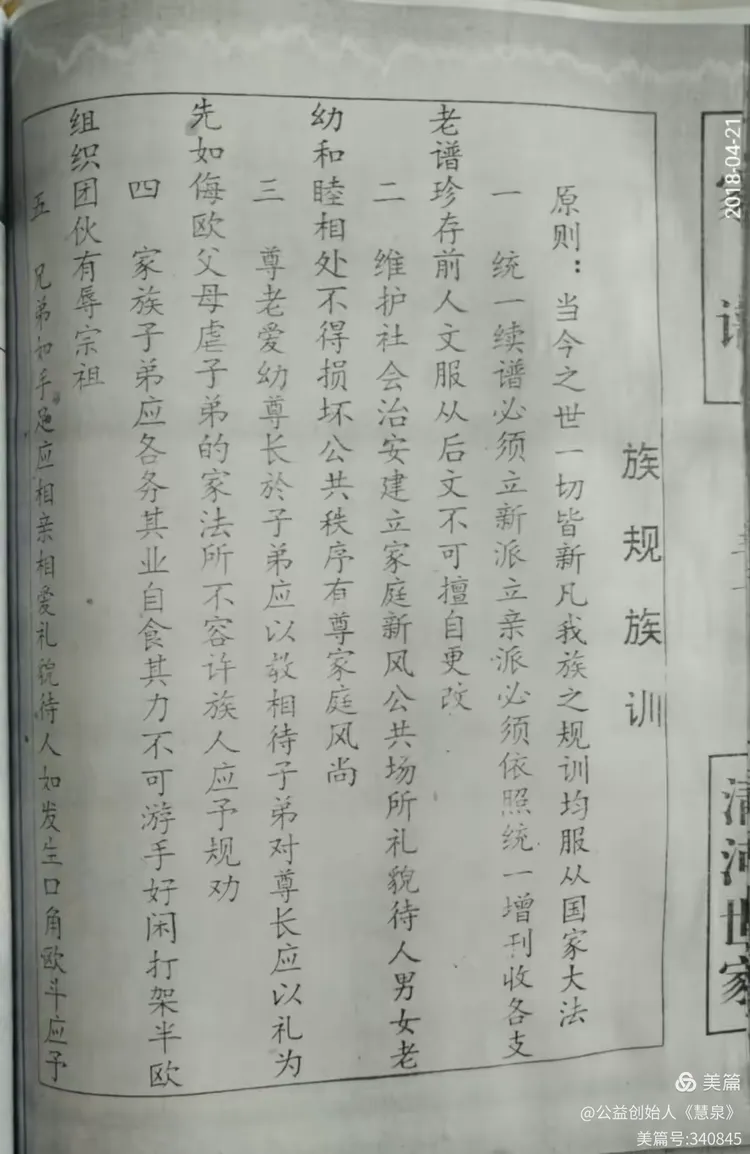 族规族训
原则：当今之世一切皆新凡我族之规训均服从国家大法
一 统一续谱必须立新派立亲派必须依照统一增刊收各支
老谱珍存前人文服从后文不可擅自更改
二 维护社会治安建立家庭新风公共场所礼貌待人男女老
幼和睦相处不得损坏公共秩序有尊家庭风尚
三 尊老爱幼尊长於子弟应以教相待子弟对尊长应以礼为
先如侮欧父母虐子弟的家法所不容许族人应予规劝
四 家族子弟应各务其业自食其力不可游手好闲打架半欧
组织团伙有辱宗祖
五 兄弟如手足应相亲相爱礼貌待人如发生口角欧斗应予
谱
清河世家
2018-04-21
美篇
@公益创始人《慧泉》
美篇号:340845